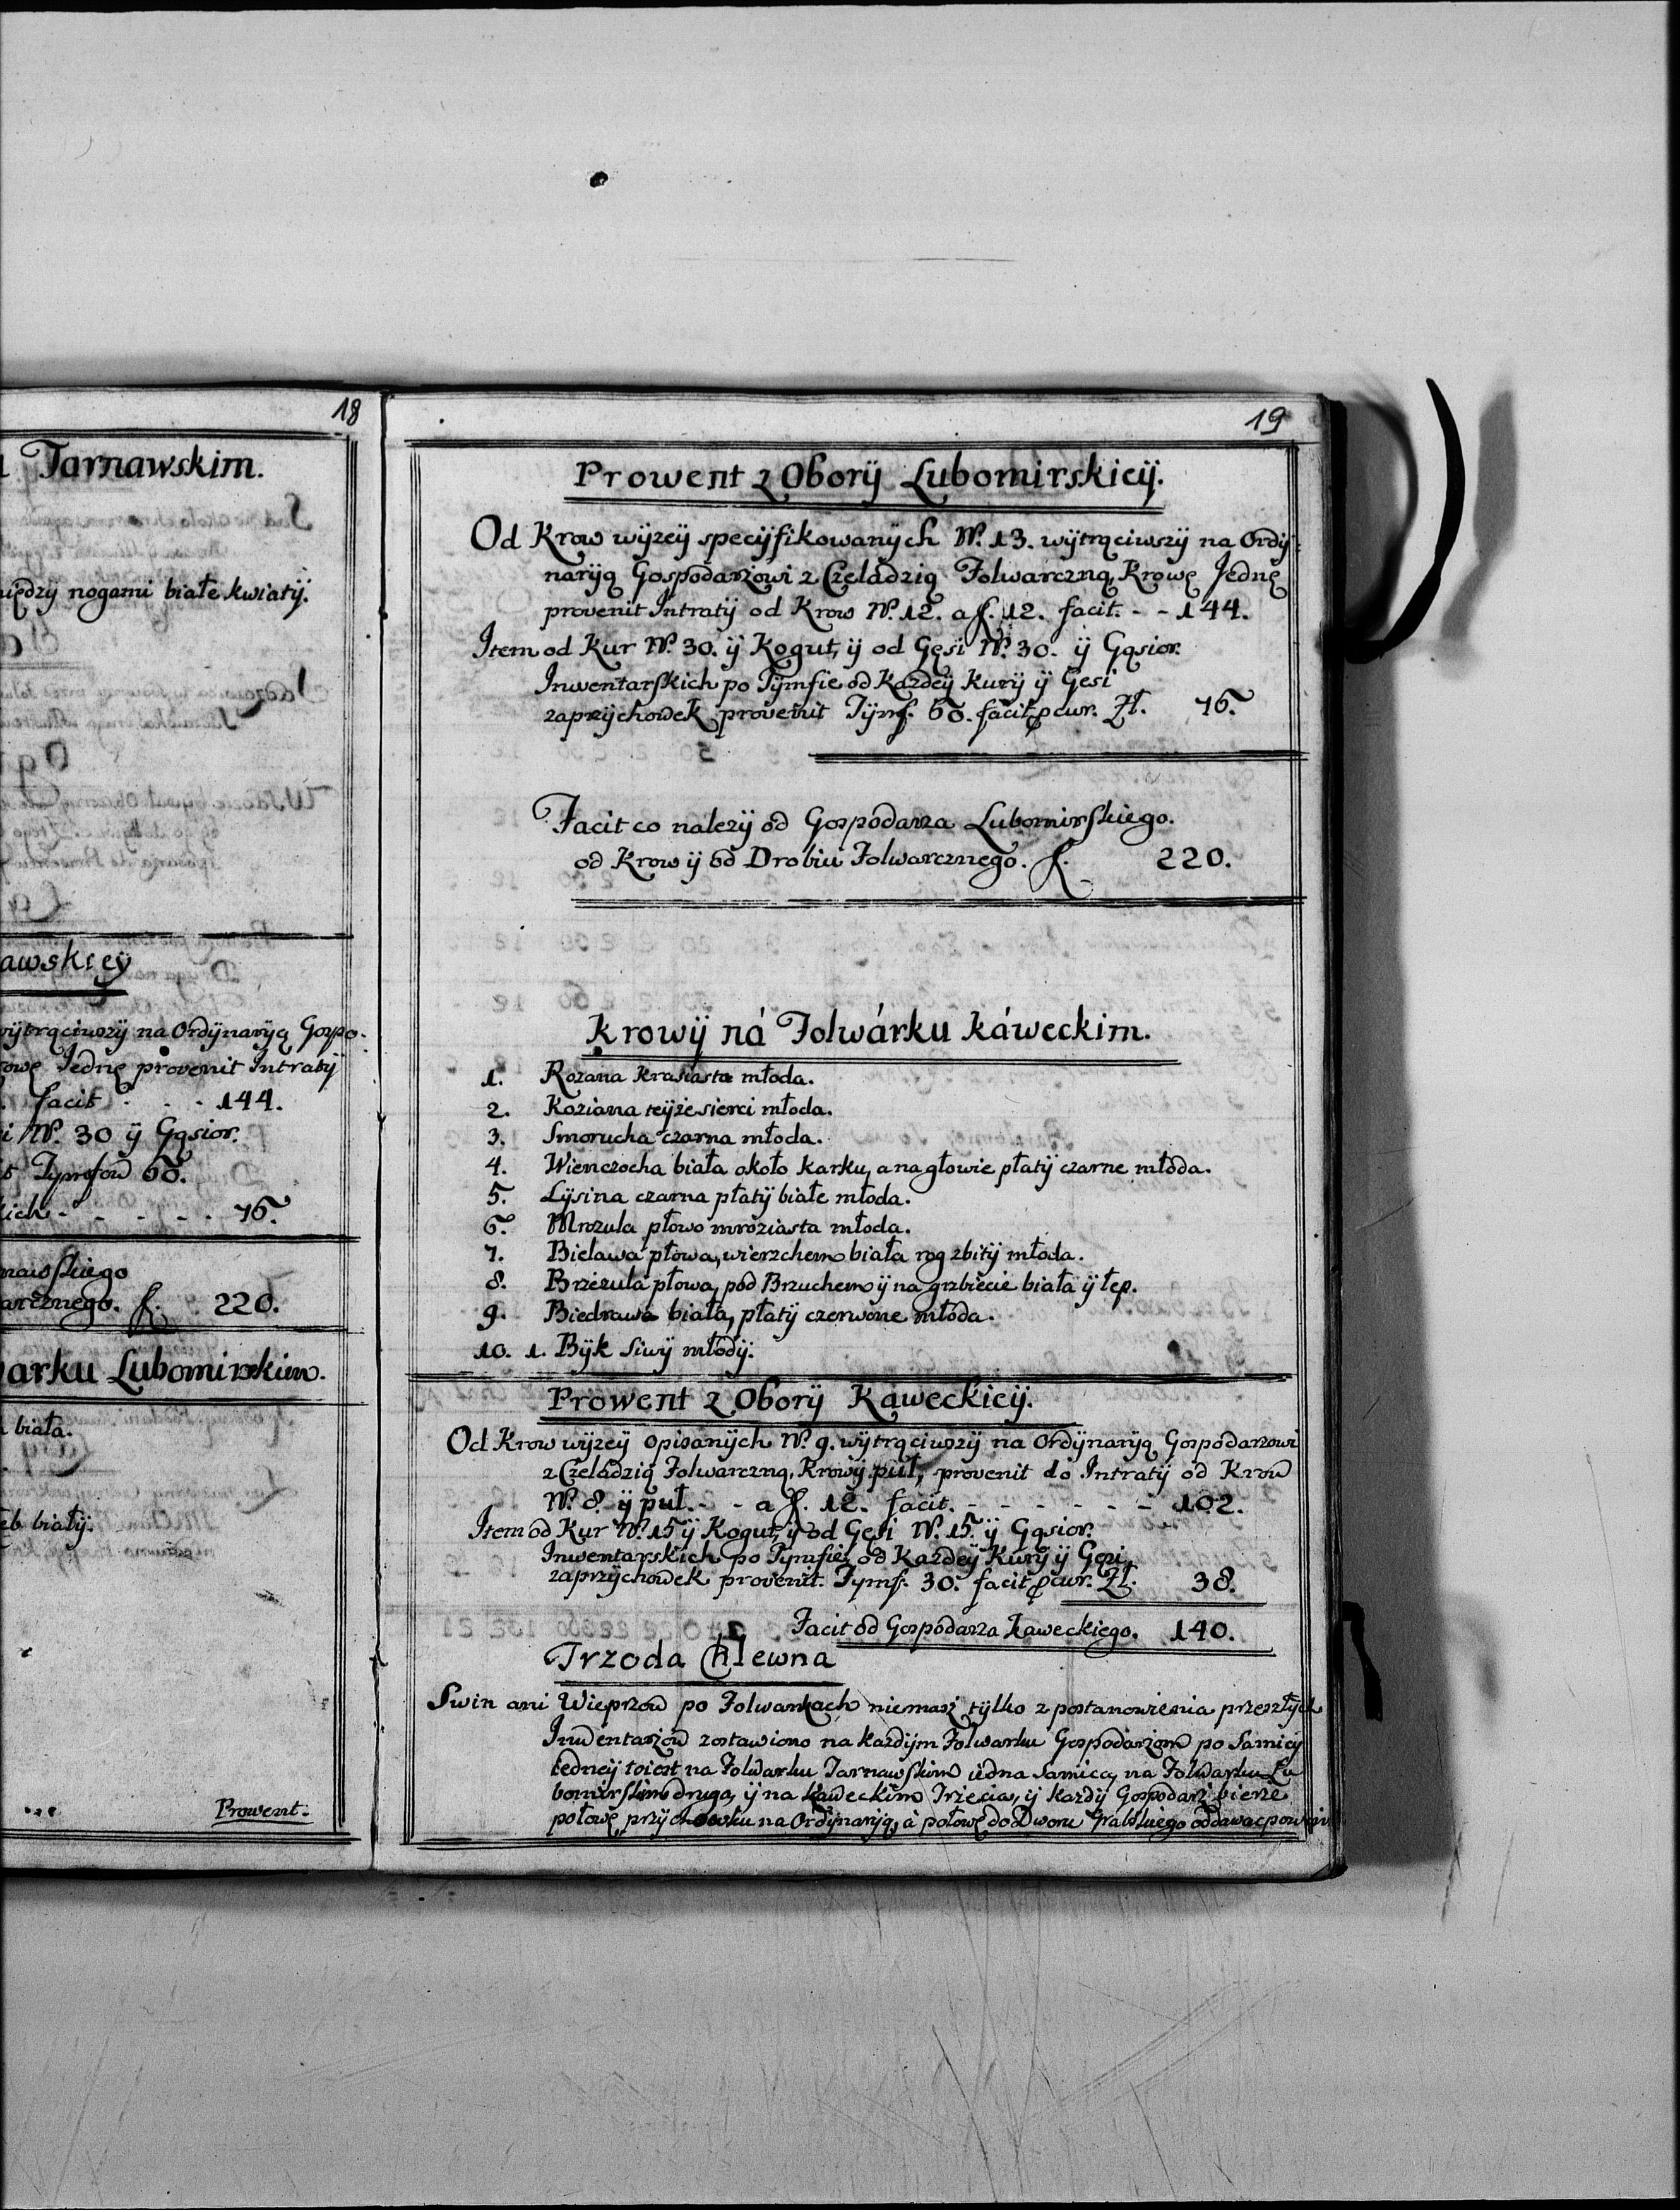 18
Tarnawskim.
między nogami białe kwiatÿ.
awskieÿ
wÿtrąciwszÿ na Ordÿnarÿą Gospo-
Jednę provenit Intratÿ
facit - - - 144.
N. 30 ÿ Gąsior.
Tymfow 60.
- - - - - 76.
220.
arku Lubomirskim.
biała.
białÿ.
Prowent.
19
Prowent z Oborÿ Lubomirskieÿ.
Od Krow wÿzeÿ specÿfikowanÿch N. 13. wÿtrąciwszÿ na Ordÿ:
narÿą Gospodarzowi z Czeladzią Folwarczną, Krowę Jednę
provenit Intratÿ od Krow N. 12. a f. 12. facit. - - 144.
Item od Kur N. 30. ÿ Kogut, ÿ od Gęsi N. 30. ÿ Gąsior.
Inwentarskich po Tÿmfie od Kazdeÿ Kurÿ ÿ Gęsi
za przÿchowek provenit Tÿmf. 60. facit p cur. Zł. 76.
Facit co nalezÿ od Gospodarza Lubomirskiego.
od Krow ÿ od Drobiu Folwarcznego. f. 220.
Krowÿ ná Folwárku káweckim.
1. Rozana krasiasta młoda.
2. Koziana teÿże sierci młoda.
3. Smorucha czarna młoda.
4. Wienczocha biała około karku, a na głowie płatÿ czarne młoda.
5. Lÿsina czarna płatÿ białe młoda.
6. Mrozula płowo mroziasta młoda.
7. Bielawa płowa, wierzchem biała rog zbitÿ młoda.
8. Brzezula płowa, pod Brzuchem ÿ na grzbiecie biała ÿ łep.
9. Biedrawa biała, płatÿ czerwone młoda.
10. 1. Bÿk siwÿ młodÿ.
Prowent z Oborÿ Kaweckieÿ.
Od Krow wÿzeÿ opisanÿch N. 9. wÿtrąciwszÿ na Ordÿnarÿą Gospodarzowi
z Czeladzią Folwarczną, Krowÿ puł, provenit do Intratÿ od Krow
N. 8. ÿ puł. - - a f. 12. facit. - - - - - - 102.
Item od Kur N. 15 ÿ Kogut, ÿ od Gęsi N. 15. ÿ Gąsior.
Inwentarskich po Tymfie, od Kazdeÿ Kurÿ ÿ Gęsi
za przÿchowek provenit. Tymf. 30. facit p cur. Zł. 38.
Facit od Gospodarza Kaweckiego. 140.
Trzoda Chlewna
Swin ani Wieprzow po Folwarkach niemasz tÿlko z postanowienia przeszłÿch
Inwentarzow zostawiono na kazdÿm Folwarku Gospodarzom po Samicÿ
iedneÿ to iest na Folwarku Tarnawskim iedna Samica, na Folwarku Lu
bomirskim druga, ÿ na Kaweckim Trzecia, ÿ kazdÿ Gospodarz bierze
połowę przÿchowku na Ordÿnarÿą, a połowę do Dworu oddawac powin